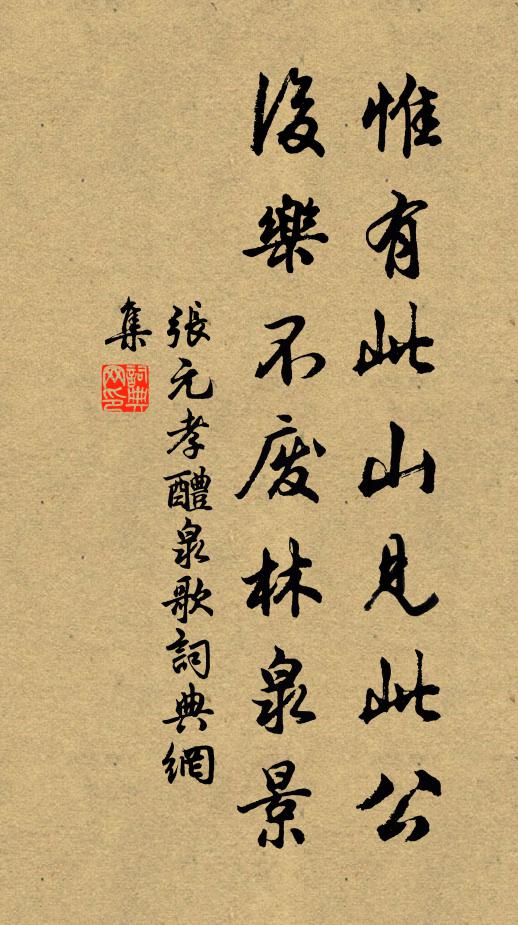 惟有此山見此公
後樂不废林泉景
張元孝醴泉歌詞典網
集
詞典網印